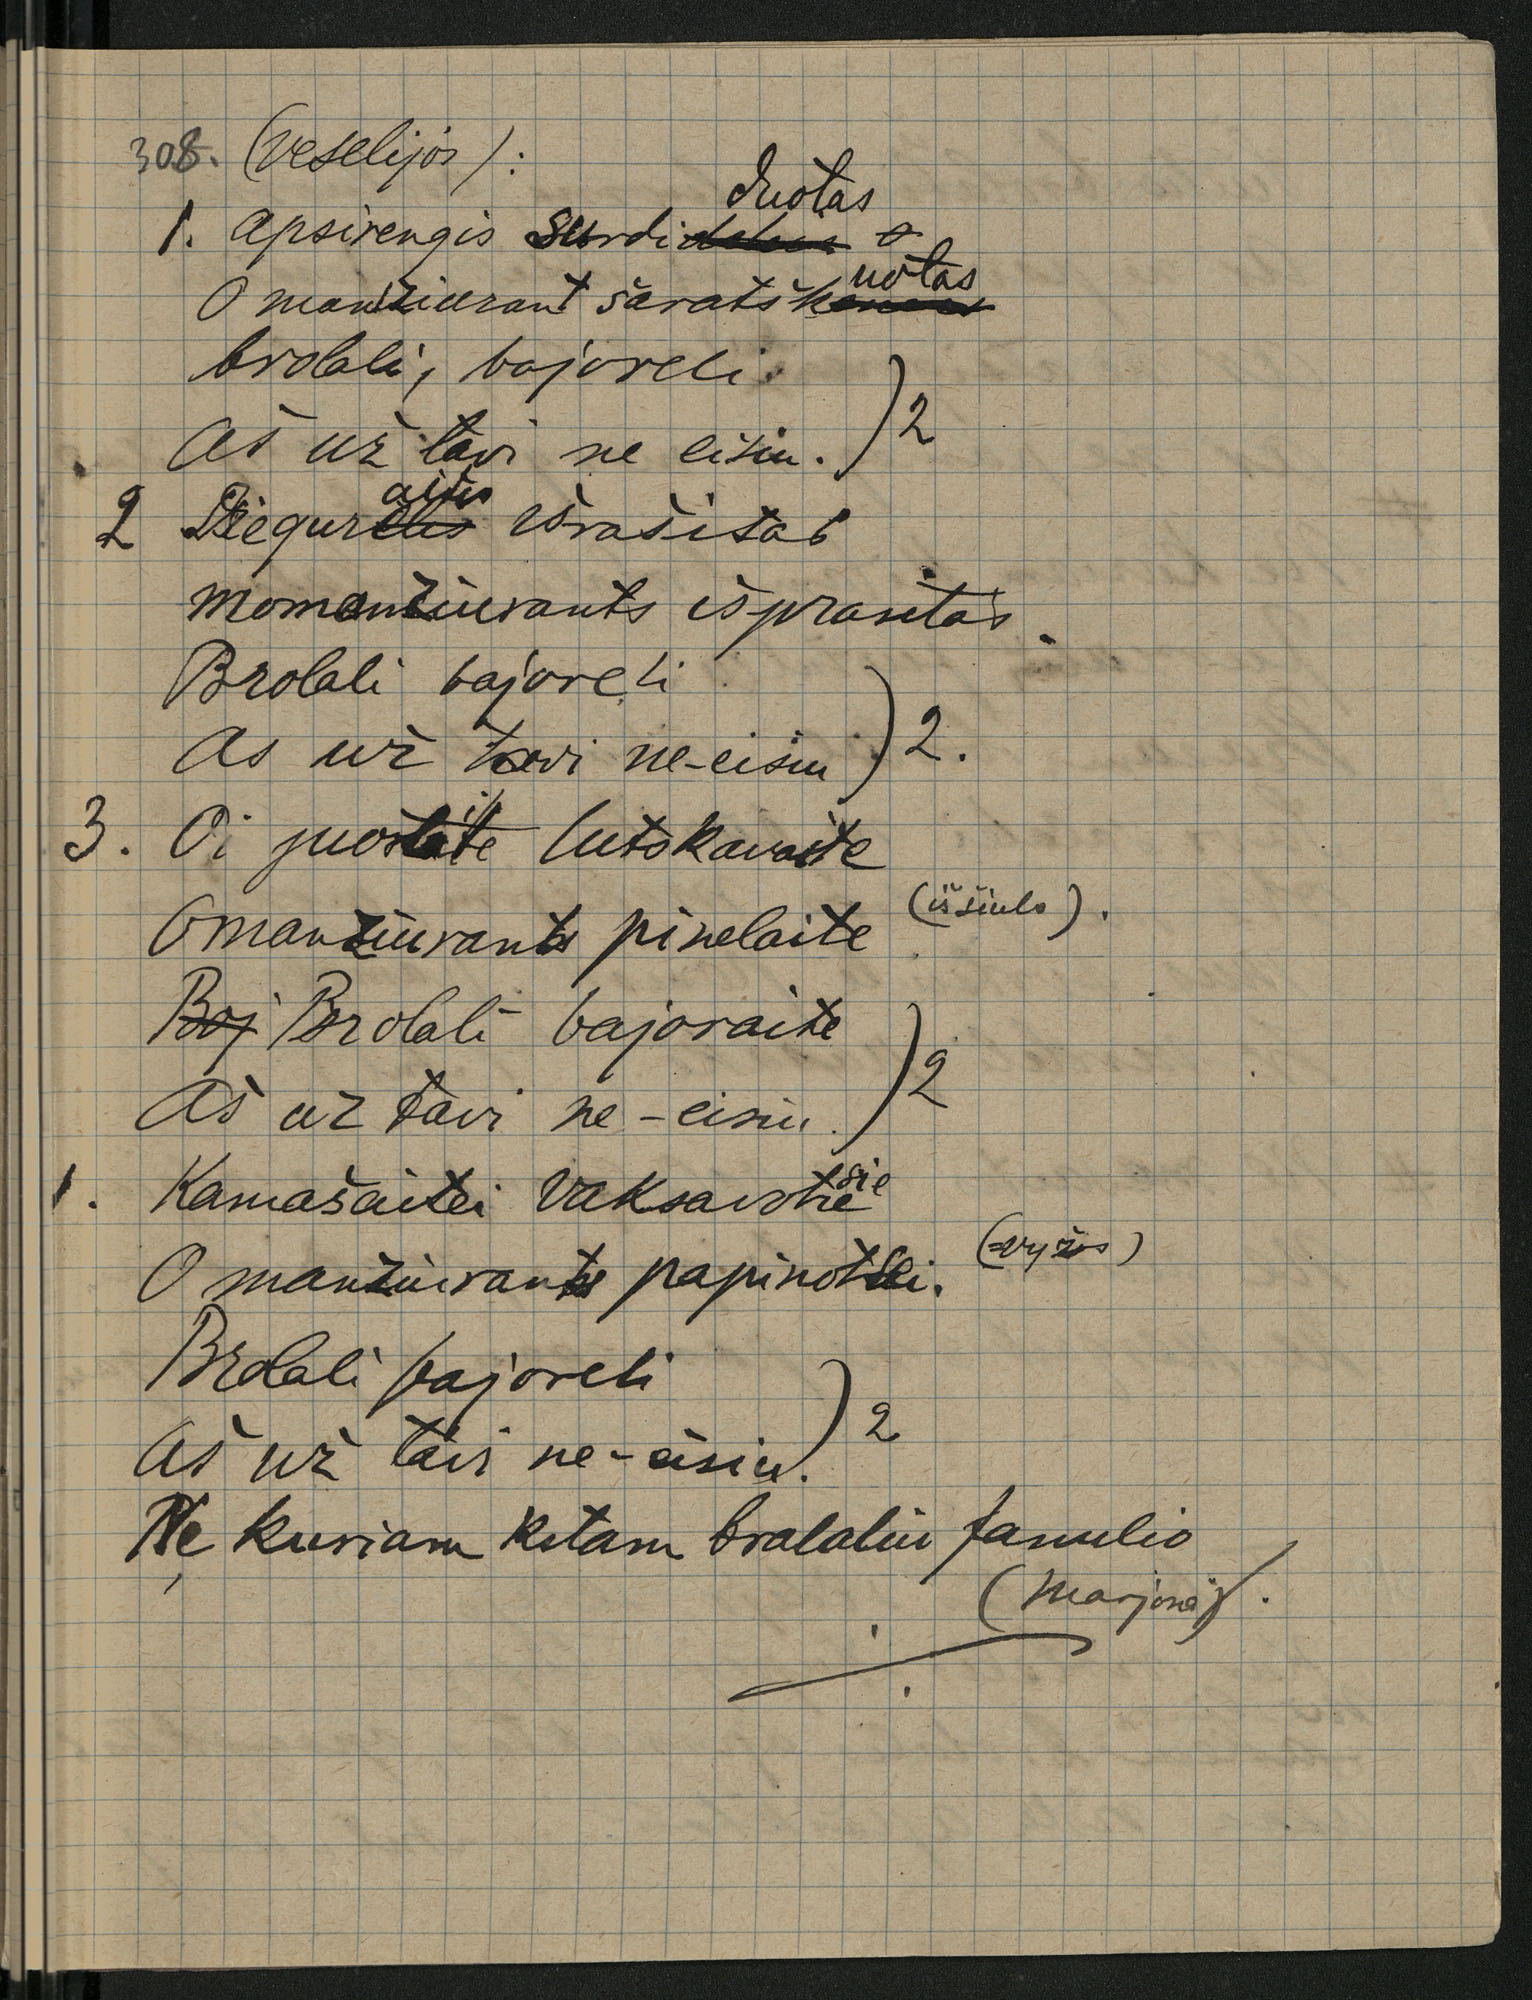 308. (veselijos):
1. Apsirengis surdiduotas
O manžiurant šaratškuotas
brolali, bajoreli
Aš už tavi ne eisiu. ) 2
2 Ziegoraitis išrašitas
momanžiurants isprasitas.
Brolali bajoreli
As už tavi ne-eisiu ) 2.
3. Oi juostaite lutskavaite
Omanžiurants pinelaite (iš šiulo).
Boj Brolali bajoraite
Aš už tavi ne-eisiu. ) 2
1. Kamašaitei vaksavotie sie
O manžiurants papinotsei. (vyžos)
Brolali bajoreli
Aš už tavi ne-eisiu. ) 2
Ne kuriam kitam bralaliu famulio
(Marjonai).